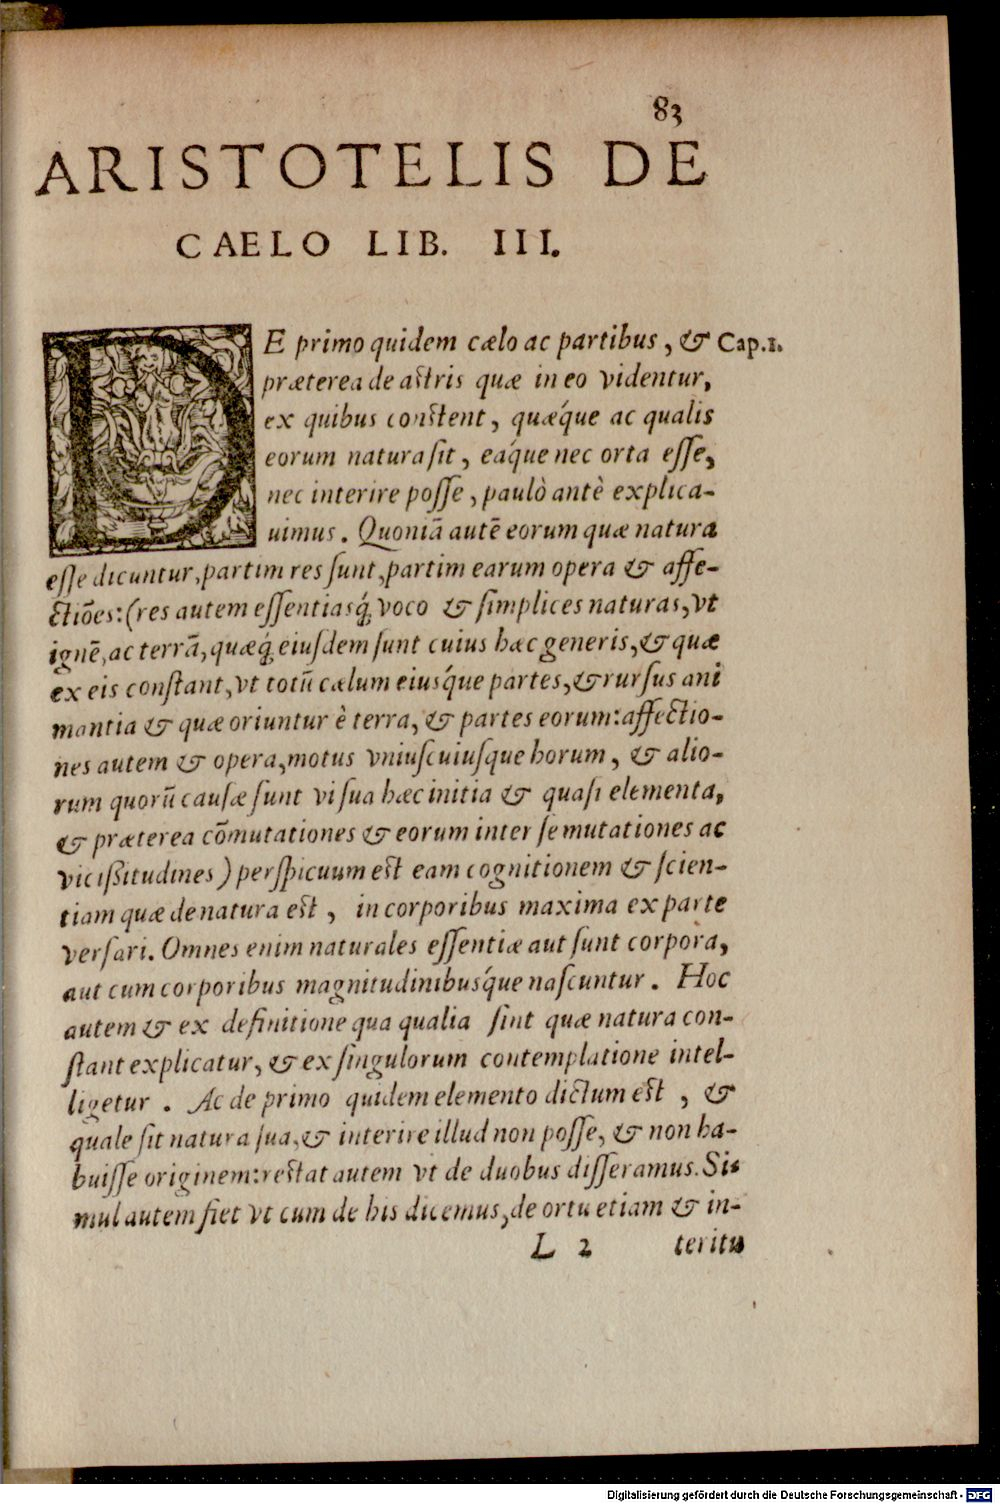 83
ARISTOTELIS DE
CAELO LIB. III.
DE primo quidem cælo ac partibus, & Cap.1.
præterea de astris quæ in eo videntur,
ex quibus constent, quæq́ue ac qualis
eorum natura ſit, eaq́ue nec orta eſſe,
nec interire poſſe, paulò antè explica-
uimus. Quoniã autẽ eorum quæ natura
eſſe dicuntur, partim res ſunt, partim earum opera & affe-
ctiões: (res autem eſſentiasq́; voco & ſimplices naturas, vt
ignẽ, ac terrã, quæq́; eiuſdem ſunt cuius hæc generis, & quæ
ex eis conſtant, vt totũ cælum eiusq́ue partes, & rurſus ani
mantia & quæ oriuntur è terra, & partes eorum: affectio-
nes autem & opera, motus vniuſcuiuſque horum, & alio-
rum quorũ cauſæ ſunt vi ſua hæc initia & quaſi elementa,
& præterea cõmutationes & eorum inter ſe mutationes ac
viciſsitudines) perſpicuum est eam cognitionem & ſcien-
tiam quæ de natura est, in corporibus maxima ex parte
verſari. Omnes enim naturales eſſentiæ aut ſunt corpora,
aut cum corporibus magnitudinibusq́ue naſcuntur. Hoc
autem & ex definitione qua qualia ſint quæ natura con-
ſtant explicatur, & ex ſingulorum contemplatione intel-
ligetur. Ac de primo quidem elemento dictum est, &
quale ſit natura ſua, & interire illud non poſſe, & non ha-
buiſſe originem: restat autem vt de duobus diſſeramus. Si-
mul autem fiet vt cum de his dicemus, de ortu etiam & in-
L 2 teritu
Digitalisierung gefördert durch die Deutsche Forschungsgemeinschaft - DFG